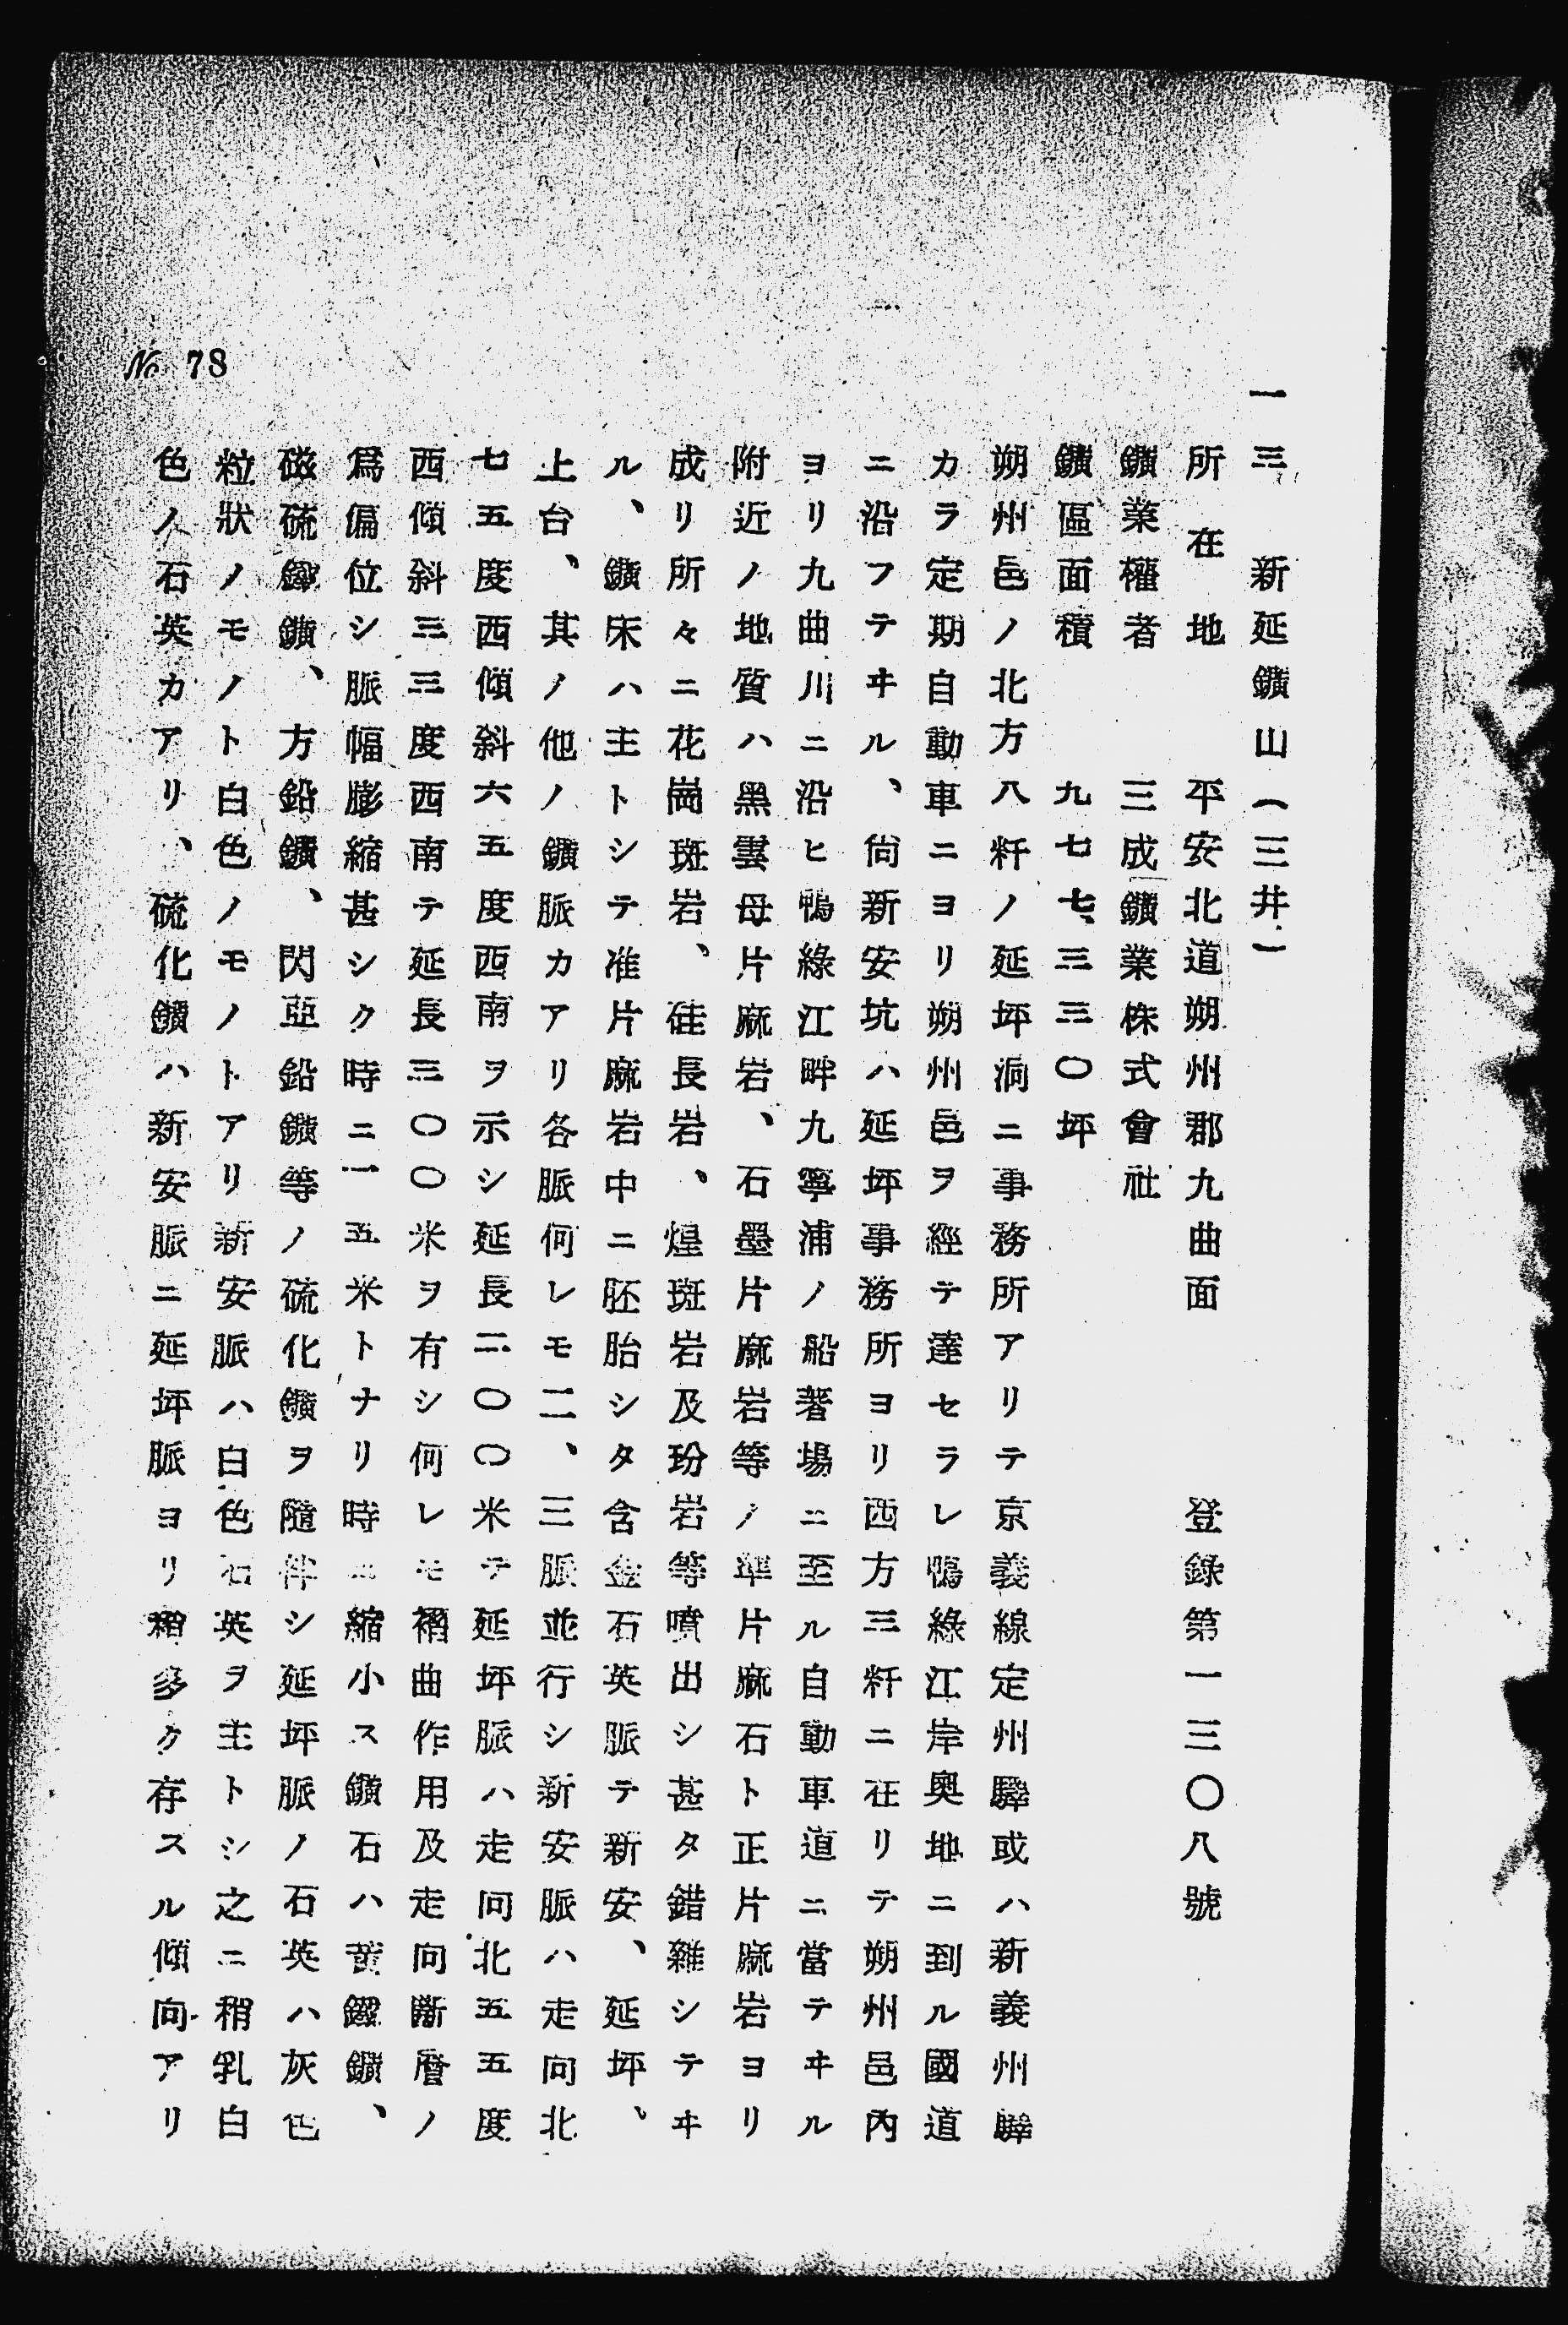 一三　新延鑛山（三井）
所在地　平安北道朔州郡九曲面　登錄第一三〇八號
鑛業權者　三成鑛業株式會社
鑛區面積　九七七、三三〇坪
朔州邑ノ北方八粁ノ延坪洞ニ事務所アリテ京義線定州驛或ハ新義州驛
カラ定期自動車ニヨリ朔州邑ヲ經テ達セラレ鴨綠江岸奧地ニ到ル國道
ニ沿フテヰル、尙新安坑ハ延坪事務所ヨリ西方三粁ニ在リテ朔州邑內
ヨリ九曲川ニ沿ヒ鴨綠江畔九寧浦ノ船著場ニ至ル自動車道ニ當テヰル
附近ノ地質ハ黑雲母片麻岩、石墨片麻岩等ノ準片麻石ト正片麻岩ヨリ
成リ所々ニ花崗斑岩、硅長岩、煌斑岩及玢岩等噴出シ甚タ錯雜シテヰ
ル、鑛床ハ主トシテ准片麻岩中ニ胚胎シタ含金石英脈テ新安、延坪、
上台、其ノ他ノ鑛脈カアリ各脈何レモ二、三脈並行シ新安脈ハ走向北
七五度西傾斜六五度西南ヲ示シ延長二〇〇米テ延坪脈ハ走向北五五度
西傾斜三三度西南テ延長三〇〇米ヲ有シ何レモ褶曲作用及走向斷層ノ
爲偏位シ脈幅膨縮甚シク時ニ一五米トナリ時ニ縮小ス鑛石ハ黃鐵鑛、
磁硫鐵鑛、方鉛鑛、閃亞鉛鑛等ノ硫化鑛ヲ隨伴シ延坪脈ノ石英ハ灰色
粒狀ノモノト白色ノモノトアリ新安脈ハ白色石英ヲ主トシ之ニ稍乳白
色ノ石英カアリ、硫化鑛ハ新安脈ニ延坪脈ヨリ稍多ク存スル傾向アリ
№ 78